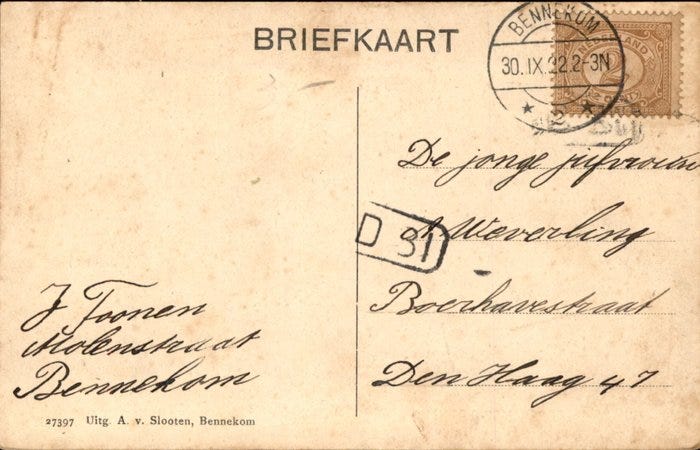 BRIEFKAART
BENNEKOM
30.IX.22.2-3N
★ 2 ★
NEDERLAND
2½
De jonge jufvrouw
A Weverling
D 31
Boerhavestraat
Den Haag 47
J Toonen
Molenstraat
Bennekom
27397 Uitg. A. v. Slooten, Bennekom